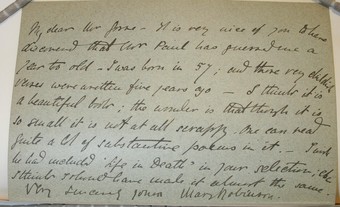 My dear Mr Gosse – It is very nice of you to have
discovered that Mr Paul has guessed me a
year too old – I was born in 57; and those very childish
verses were written five years ago – I think it is
a beautiful book; the wonder is that though it is
so small it is not at all scrappy. One can read
quite a lot of substantive poems in it. – I wish
he had included "Life in Death" in your selection; else
I think I should have made it almost the same.
Very sincerely yours Mary Robinson.